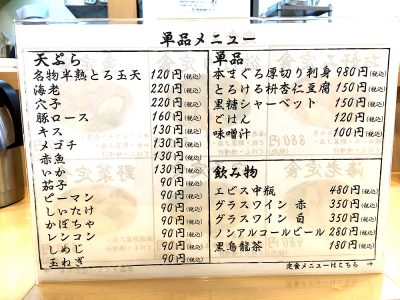 単品メニュー
天ぷら
名物半熟とろ玉天 120円(税込)
海老 220円(税込)
穴子 220円(税込)
豚ロース 160円(税込)
キス 130円(税込)
メゴチ 130円(税込)
赤魚 130円(税込)
いか 130円(税込)
茄子 90円(税込)
ピーマン 90円(税込)
しいたけ 90円(税込)
かぼちゃ 90円(税込)
レンコン 90円(税込)
しめじ 90円(税込)
玉ねぎ 90円(税込)
単品
本まぐろ厚切り刺身 980円(税込)
とろける杏仁豆腐 150円(税込)
黒糖シャーベット 150円(税込)
ごはん 120円(税込)
味噌汁 100円(税込)
飲み物
エビス中瓶 480円(税込)
グラスワイン 赤 350円(税込)
グラスワイン 白 350円(税込)
ノンアルコールビール 280円(税込)
黒烏龍茶 180円(税込)
定食メニューはこちら →